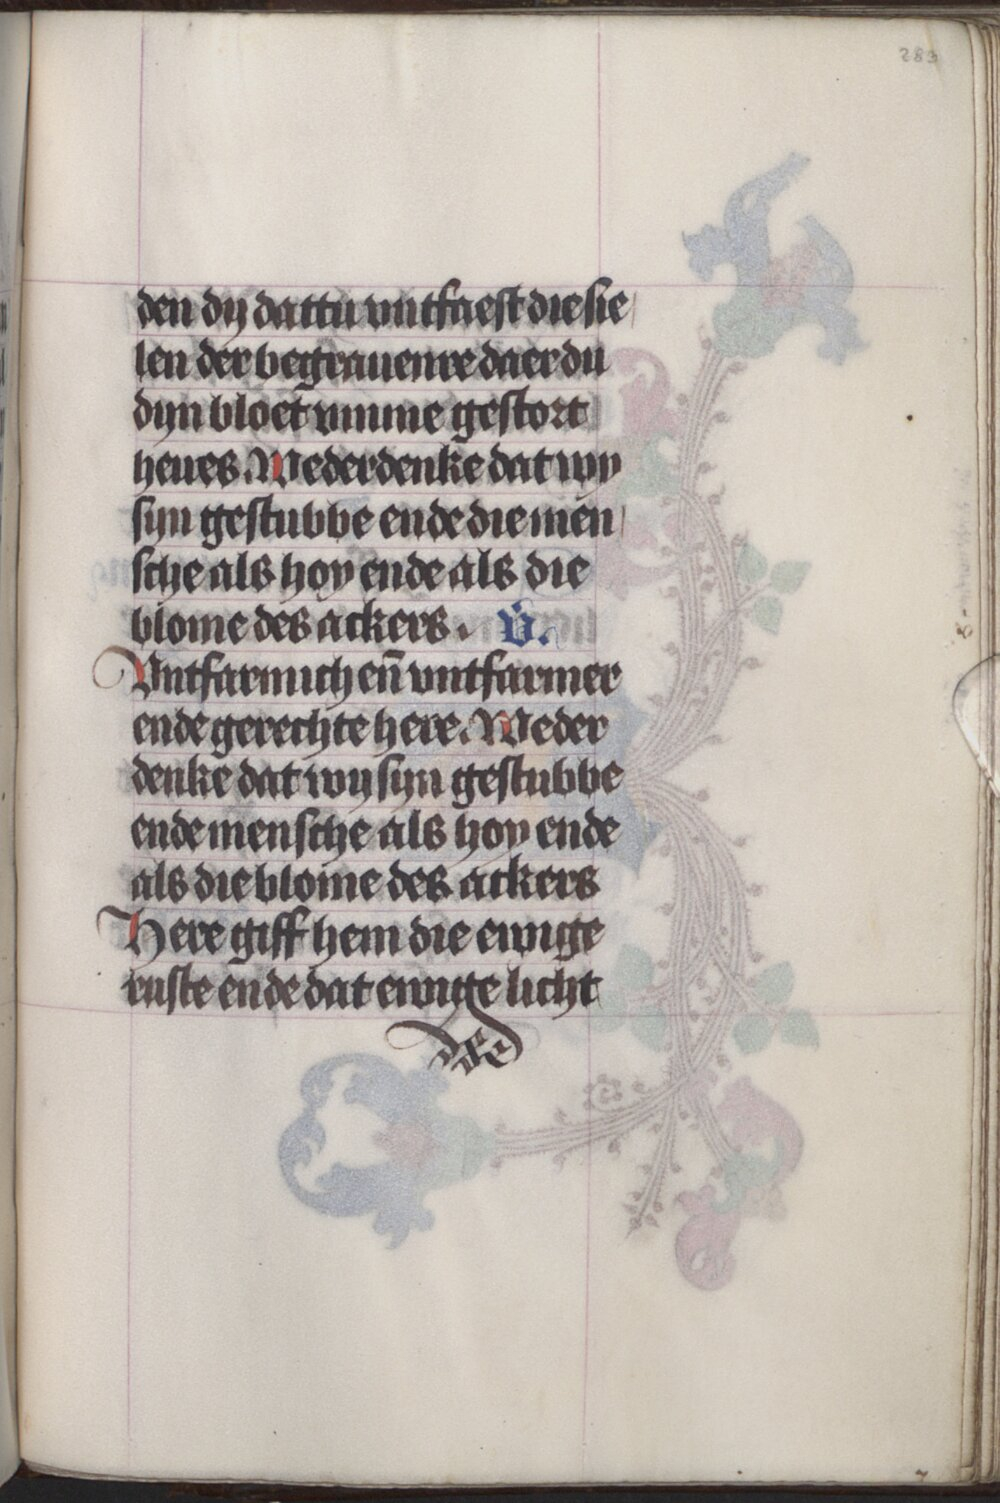 283
den dy dattu vntfaest die sie
len der begrauenre daer du
dyn bloet vmme gestort
heues. Wederdenke dat wy
syn gestubbe ende die men
sche als hoy ende als die
blome des ackers. V̓.
Vntfarmich en̄ vntfarmer
ende gerechte here. Weder
denke dat wy syn gestubbe
ende mensche als hoy ende
als die blome des ackers
Here giff hem die ewige
ruste ende dat ewige licht